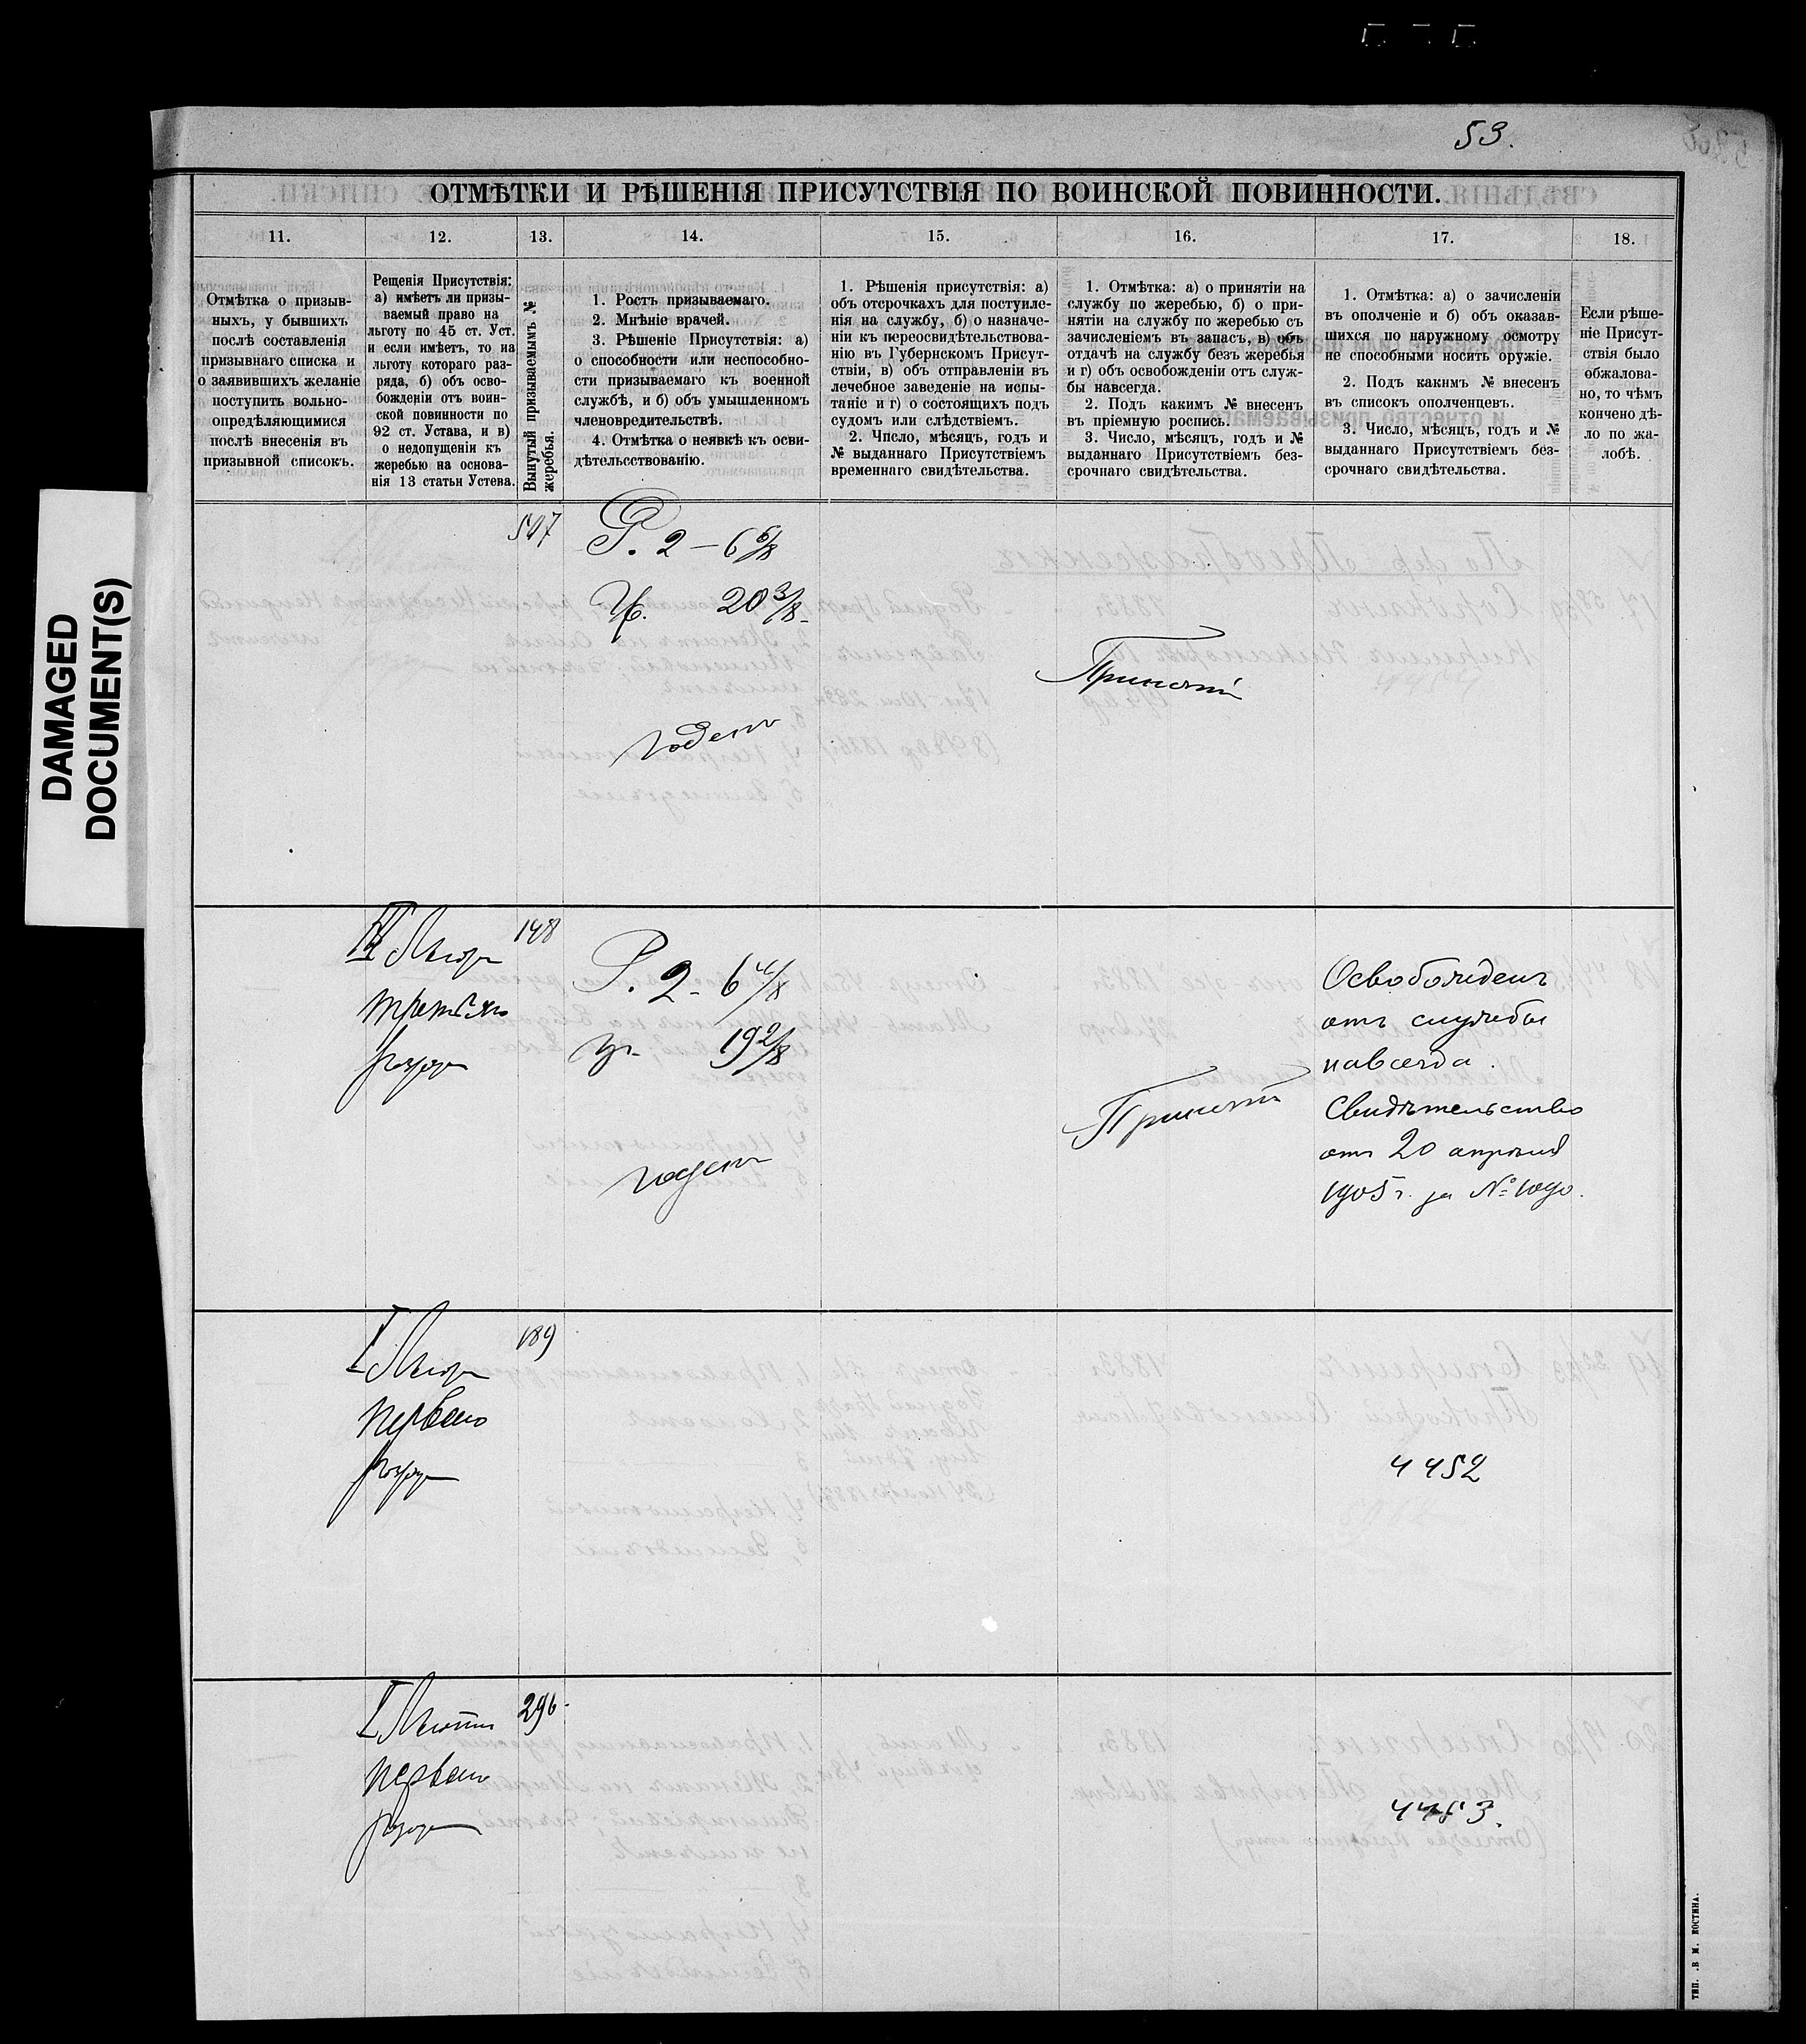 53.
DAMAGED
DOCUMENT(S)
ОТМѢТКИ И РѢШЕНІЯ ПРИСУТСТВІЯ ПО ВОИНСКОЙ ПОВИННОСТИ.
11.
12.
13.
14.
15.
16.
17.
18.
Отмѣтка о призыв-
ныхъ, у бывшихъ
послѣ составленія
призывнаго списка и
о заявившихъ желаніе
поступить вольно-
опредѣляющимися
послѣ внесенія въ
призывной списокъ.
Рещенія Присутствія:
а) имѣетъ ли призы-
ваемый право на
льготу по 45 ст. Уст.
и если имѣетъ, то на
льготу котораго раз-
ряда, б) объ осво-
божденіи отъ воин-
ской повинности по
92 ст. Устава, и в)
о недопущеніи къ
жеребью на основа-
нія 13 статьи Устева.
Вынутый призываемымъ №
жеребья.
1. Ростъ призываемаго.
2. Мнѣніе врачей.
3. Рѣшеніе Присутствія: а)
о способности или неспособно-
сти призываемаго къ военной
службѣ, и б) объ умышленномъ
членовредительствѣ.
4. Отмѣтка о неявкѣ къ осви-
дѣтельсствованію.
1. Рѣшенія присутствія: а)
объ отсрочкахъ для поступле-
нія на службу, б) о назначе-
ніи къ переосвидѣтельствова-
нію въ Губернскомъ Присут-
ствіи, в) объ отправленіи въ
лечебное заведеніе на испы-
таніе и г) о состоящихъ подъ
судомъ или слѣдствіемъ.
2. Число, мѣсяцъ, годъ и
№ выданнаго Присутствіемъ
временнаго свидѣтельства.
1. Отмѣтка: а) о принятіи на
службу по жеребью, б) о при-
нятіи на службу по жеребью съ
зачисленіемъ въ запасъ, в) объ
отдачѣ на службу безъ жеребья
и г) объ освобожденіи отъ служ-
бы навсегда.
2. Подъ какимъ № внесенъ
въ пріемную роспись.
3. Число, мѣсяцъ, годъ и №
выданнаго Присутствіемъ без-
срочнаго свидѣтельства.
1. Отмѣтка: а) о зачисленіи
въ ополченіе и б) объ оказав-
шихся по наружному осмотру
не способными носить оружіе.
2. Подъ какимъ № внесенъ
въ список ополченцевъ.
3. Число, мѣсяцъ, годъ и №
выданнаго Присутствіемъ без-
срочнаго свидѣтельства.
Если рѣше-
ніе Присут-
ствія было
обжалова-
но, то чѣмъ
кончено дѣ-
ло по жа-
лобѣ.
Р. 2 – 6 6/8
20 3/8
годенъ
Принятъ
III Льгота
третьяго
разряда
148
Р. 2 - 6 4/8
19 2/8
годенъ
Принятъ
Освобожденъ
отъ службы
навсегда.
Свидѣтельство
отъ 20 апрѣля
1905 г. за № 1090.
I Льгота
перваго
разряда
189
4452
I Льгота
перваго
разряда
296
4453.
ТИП. В. М. КОСТИНА.